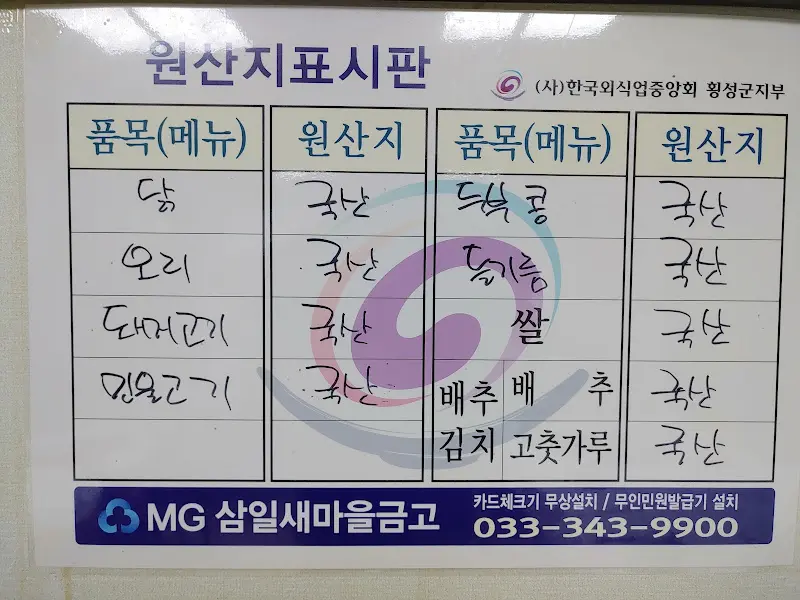 원산지표시판
(사)한국외식업중앙회 횡성군지부
품목(메뉴) 원산지 품목(메뉴) 원산지
닭 국산 두부콩 국산
오리 국산 들기름 국산
돼지고기 국산 쌀 국산
민물고기 국산 배추 배 추 국산
김치 고춧가루 국산
MG 삼일새마을금고
카드체크기 무상설치 / 무인민원발급기 설치
033-343-9900